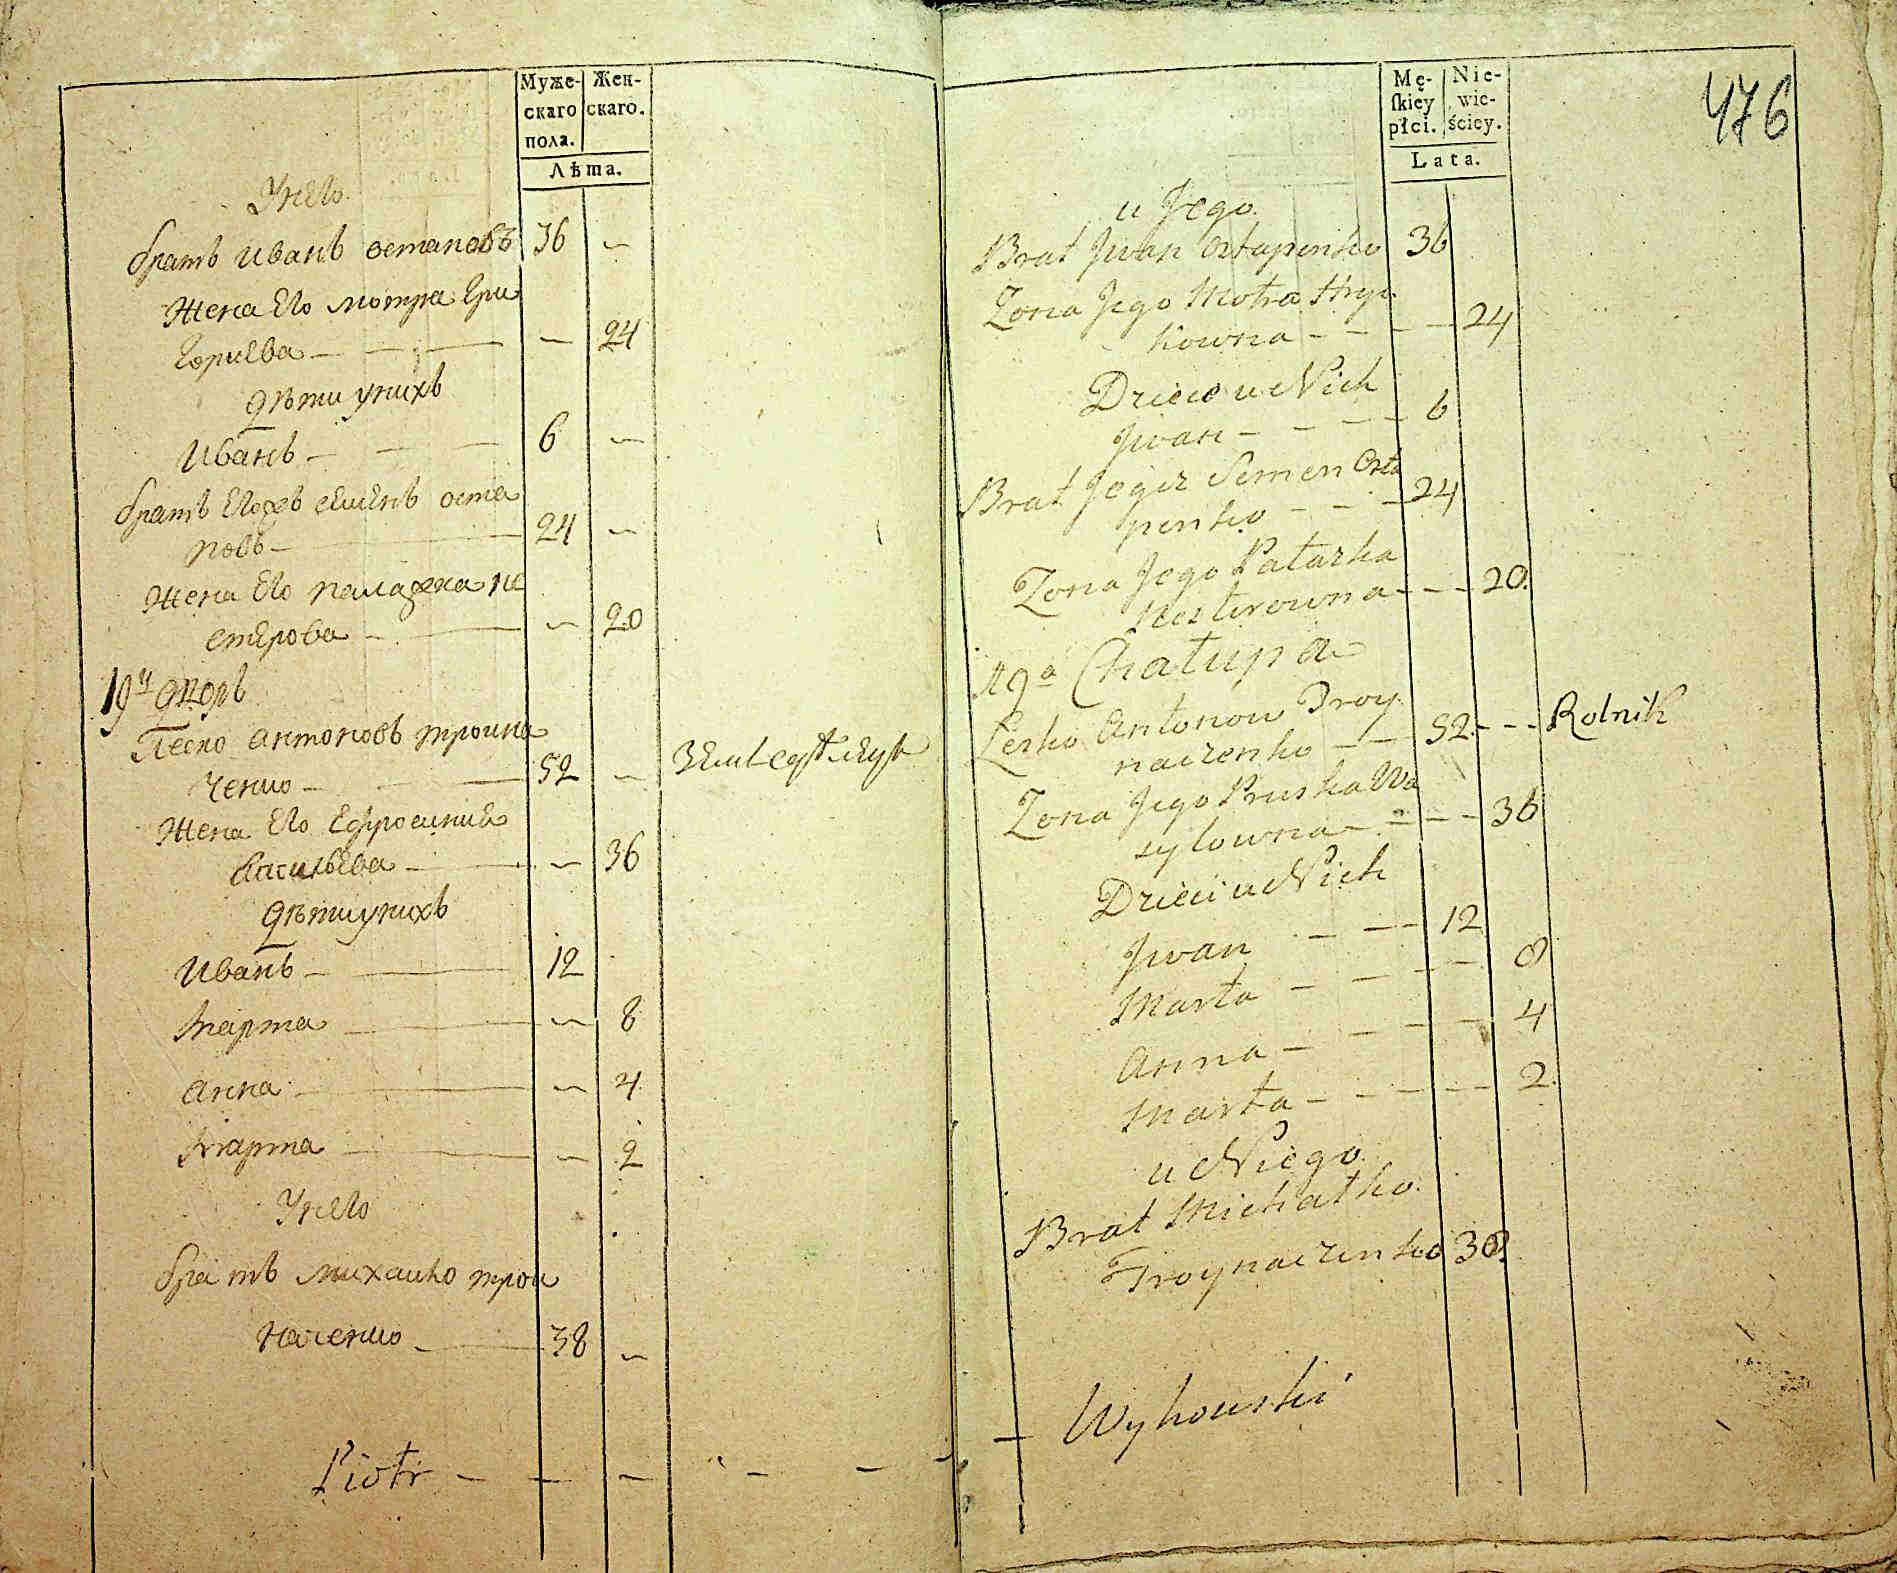 Муже-
скаго
пола.
Жен-
скаго.
Лѣта.
У него
братъ иванъ остаповъ 36 –
жена его мотра гри
горіева – – 24
дѣти у нихъ
иванъ – 6 –
братъ его семенъ оста
повъ – 24 –
жена его палажка не
стерова – – 20
19й дворъ
Леско антоновъ троина
ченко – 52 –
жена его ефросиния
василіева – – 36
дѣти у нихъ
иванъ – 12
марта – – 8
анна – – 4
марта – – 2
У него
братъ михаико трои
наченко – 38 –
Piotr – – – – – –
476
Mę-
ſkiey
płci.
Nie-
wie-
ściey.
Lata.
u Jego
Brat Jwan Ostapenko 36
Zona Jego Motra Hryi-
kowna – – – 24
Dzieci u Nich
Jwan – – – – 6
Brat Jegoz Semen Osta
penko – – – 24
Zona Jego Pałazka
Nesterowna – – – 20.
19a Chałupa
Lesko Antonow Troy-
naczenko – – 52 – – – Rolnik
Zona Jego Pruska Wa
sylowna – – – – 36
Dzieci u Nich
Jwan – – – 12
Marta – – – – 8
Anna – – – – 4
Marta – – – – – 2.
u Niego
Brat Michałko
Troynaczenko 38
– Wyhowski